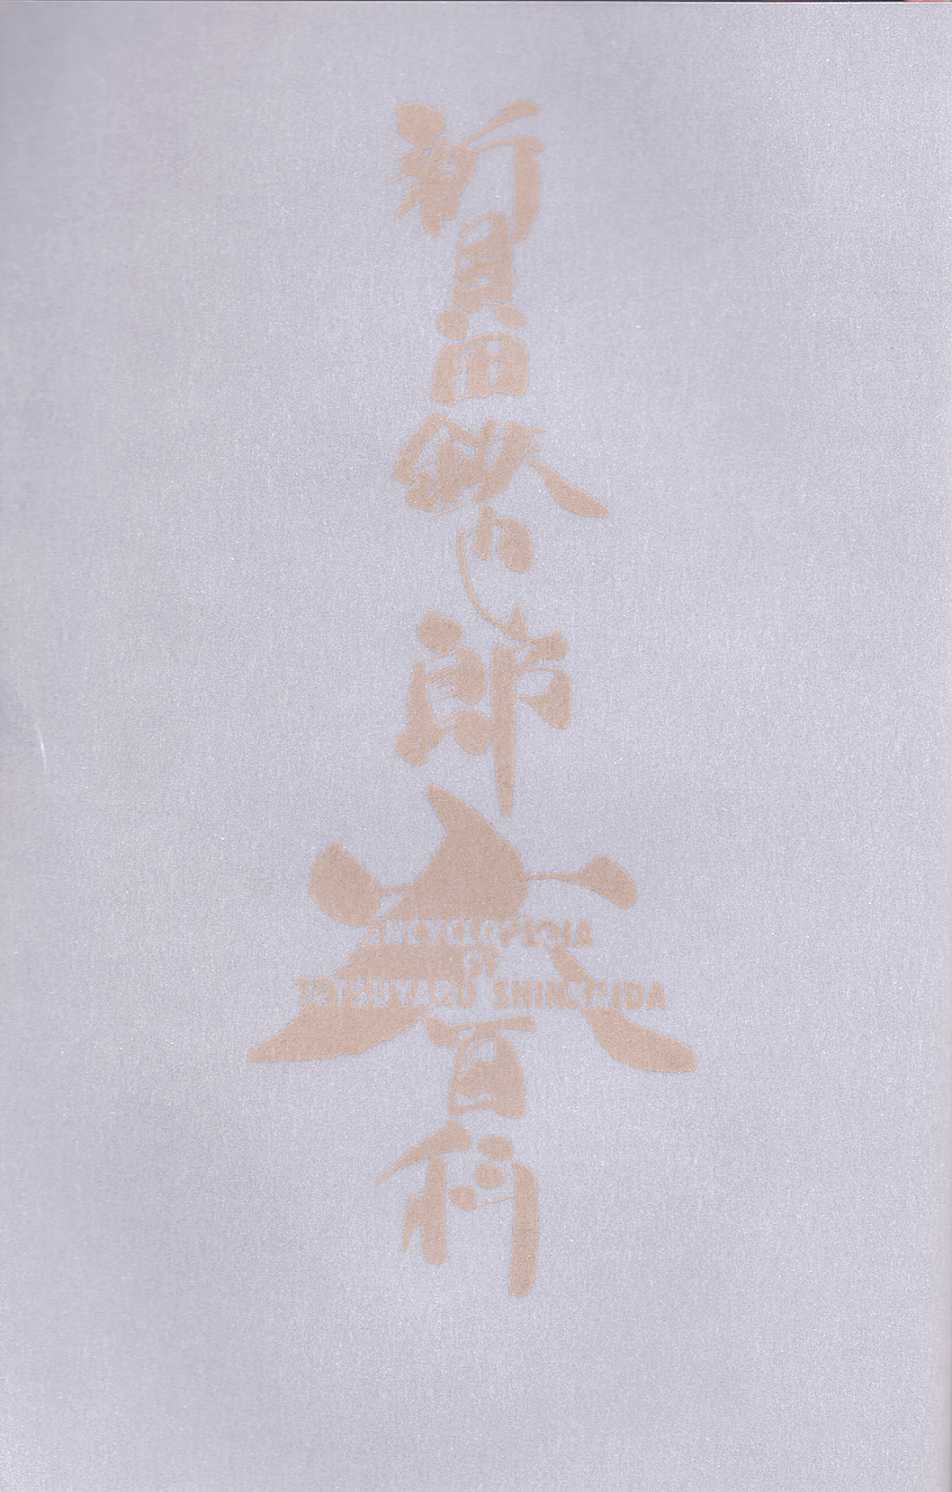 新貝田鉄也郎大百科
ENCYCLOPEDIA
OF
TETSUYARO SHINKAIDA